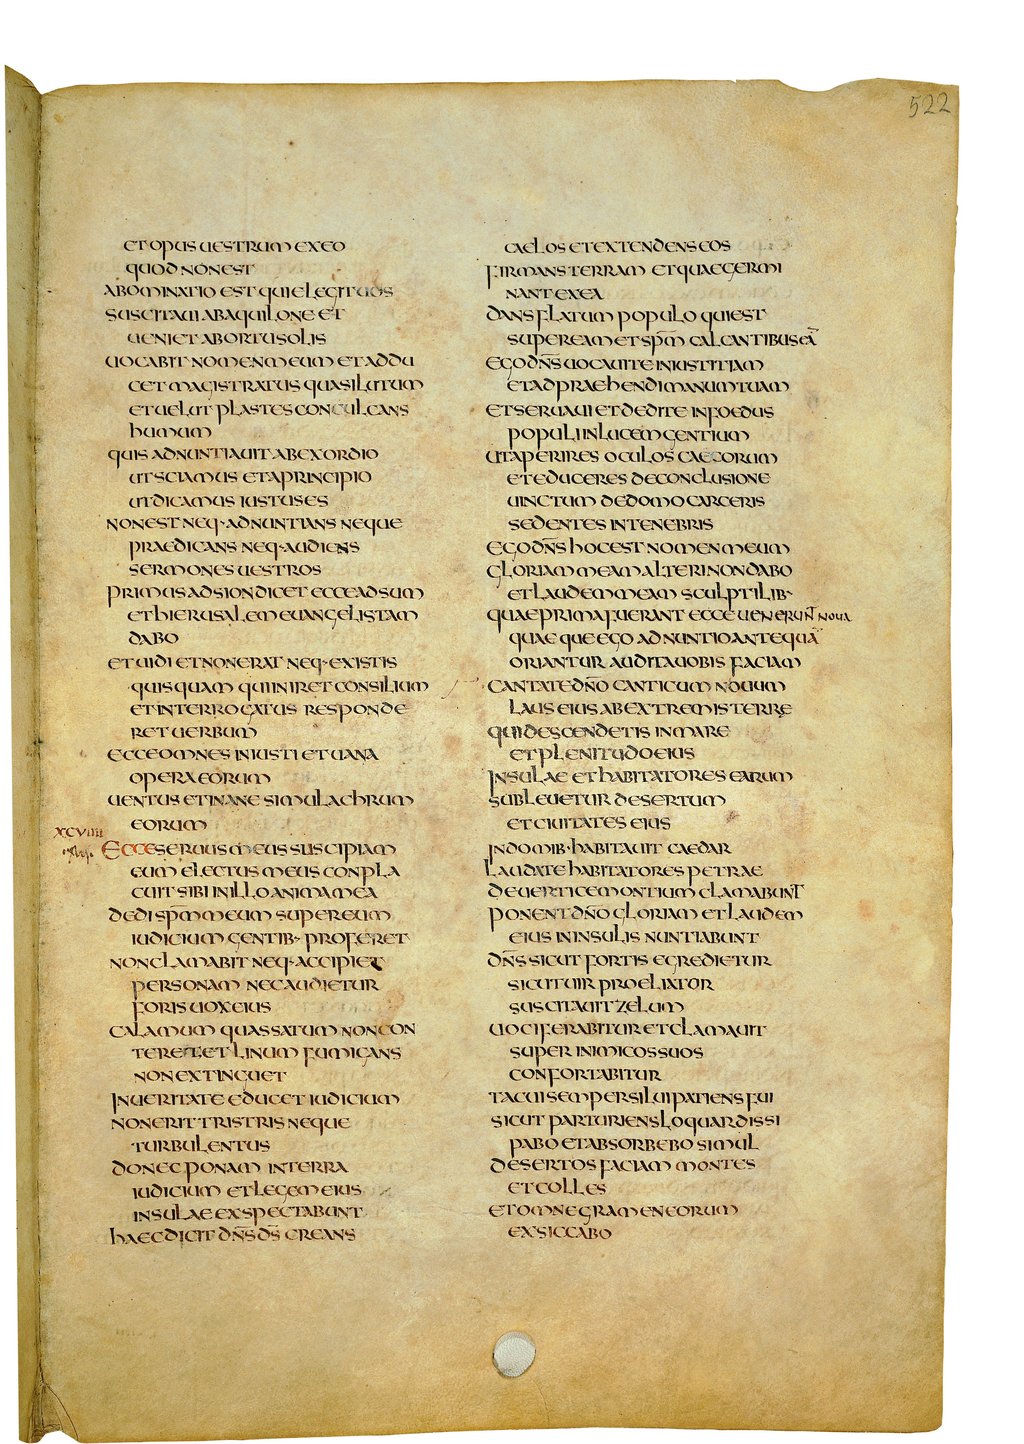 522
ET OPUS UESTRUM EX EO
QUOD NON EST
ABOMINATIO EST QUI ELEGIT UOS
SUSCITAUI AB AQUILONE ET
UENIET AB ORTU SOLIS
UOCABIT NOMEN MEUM ET ADDU
CET MAGISTRATUS QUASI LUTUM
ET UELUT PLASTES CONCULCANS
HUMUM
QUIS ADNUNTIAUIT AB EXORDIO
UT SCIAMUS ET A PRINCIPIO
UT DICAMUS IUSTUS ES
NON EST NEQ· ADNUNTIANS NEQUE
PRAEDICANS NEQ· AUDIENS
SERMONES UESTROS
PRIMUS AD SION DICET ECCE ADSUM
ET HIERUSALEM EUANGELISTAM
DABO
ET UIDI ET NON ERAT NEQ· EX ISTIS
QUISQUAM QUI INIRET CONSILIUM
ET INTERROGATUS RESPONDE
RET UERBUM
ECCE OMNES INIUSTI ET UANA
OPERA EORUM
UENTUS ET INANE SIMULACHRUM
EORUM
XCVIIII
ECCE SERUUS MEUS SUSCIPIAM
EUM ELECTUS MEUS CONPLA
CUIT SIBI IN ILLO ANIMA MEA
DEDI SPM̅ MEUM SUPER EUM
IUDICIUM GENTIB· PROFERET
NON CLAMABIT NEQ· ACCIPIET
PERSONAM NEC AUDIETUR
FORIS UOX EIUS
CALAMUM QUASSATUM NON CON
TERET ET LINUM FUMIGANS
NON EXTINGUET
IN UERITATE EDUCET IUDICIUM
NON ERIT TRISTRIS NEQUE
TURBULENTUS
DONEC PONAM IN TERRA
IUDICIUM ET LEGEM EIUS
INSULAE EXSPECTABUNT
HAEC DICIT DN̅S DS̅ CREANS
CAELOS ET EXTENDENS EOS
FIRMANS TERRAM ET QUAE GERMI
NANT EX EA
DANS FLATUM POPULO QUI EST
SUPER EAM ET SPM̅ CALCANTIBUS EA̅
EGO DN̅S UOCAUI TE IN IUSTITIAM
ET ADPRAEHENDI MANUM TUAM
ET SERUAUI ET DEDI TE IN FOEDUS
POPULI IN LUCEM GENTIUM
UT APERIRES OCULOS CAECORUM
ET EDUCERES DE CONCLUSIONE
UINCTUM DE DOMO CARCERIS
SEDENTES IN TENEBRIS
EGO DN̅S HOC EST NOMEN MEUM
GLORIAM MEAM ALTERI NON DABO
ET LAUDEM MEAM SCULPTILIB·
QUAE PRIMA FUERANT ECCE UENERUNT NOUA
QUAEQUE EGO ADNUNTIO ANTEQUA̅
ORIANTUR AUDITA UOBIS FACIAM
CANTATE DN̅O CANTICUM NOUUM
LAUS EIUS AB EXTREMIS TERRE
QUI DESCENDETIS IN MARE
ET PLENITUDO EIUS
INSULAE ET HABITATORES EARUM
SUBLEUETUR DESERTUM
ET CIUITATES EIUS
IN DOMIB· HABITAUIT CAEDAR
LAUDATE HABITATORES PETRAE
DE UERTICE MONTIUM CLAMABUNT
PONENT DN̅O GLORIAM ET LAUDEM
EIUS IN INSULIS NUNTIABUNT
DN̅S SICUT FORTIS EGREDIETUR
SICUT UIR PROELIATOR
SUSCITAUIT ZELUM
UOCIFERABITUR ET CLAMAUIT
SUPER INIMICOS SUOS
CONFORTABITUR
TACUI SEMPER SILUI PATIENS FUI
SICUT PARTURIENS LOQUAR DISSI
PABO ET ABSORBEBO SIMUL
DESERTOS FACIAM MONTES
ET COLLES
ET OMNE GRAMEN EORUM
EXSICCABO